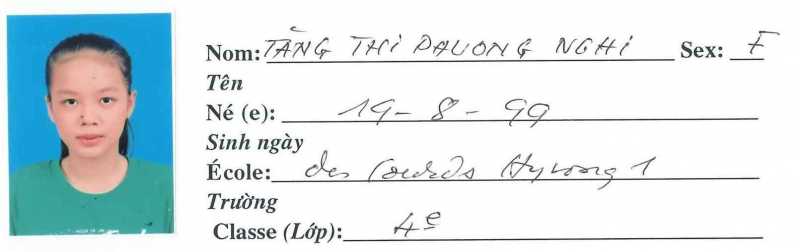 Nom: TĂNG THI PHUONG NGHI Sex: F
Tên
Né (e): 19-8-99
Sinh ngày
École: des Sourds Hy vong 1
Trường
Classe (Lớp): 4e